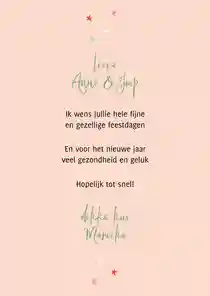 Lieve
Anne & Jaap
Ik wens jullie hele fijne
en gezellige feestdagen
En voor het nieuwe jaar
veel gezondheid en geluk
Hopelijk tot snel!
dikke kus
Marieke